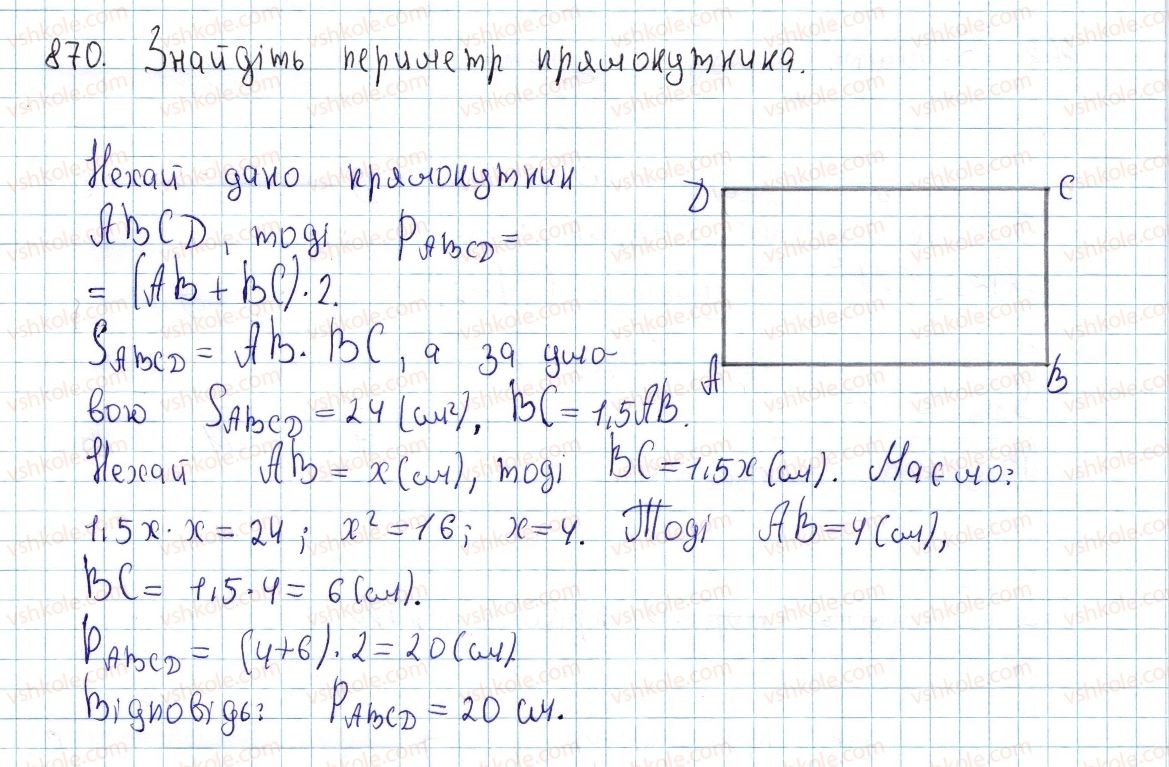 870. Знайдіть периметр прямокутника.
Нехай дано прямокутник
ABCD, тоді P_ABCD =
= (AB + BC) · 2.
S_ABCD = AB · BC, а за умо-
вою S_ABCD = 24 (см²), BC = 1,5AB.
Нехай AB = x (см), тоді BC = 1,5x (см). Маємо:
1,5x · x = 24; x² = 16; x = 4. Тоді AB = 4 (см),
BC = 1,5 · 4 = 6 (см).
P_ABCD = (4+6) · 2 = 20 (см)
Відповідь: P_ABCD = 20 см.
D C
A B
vshkole.com